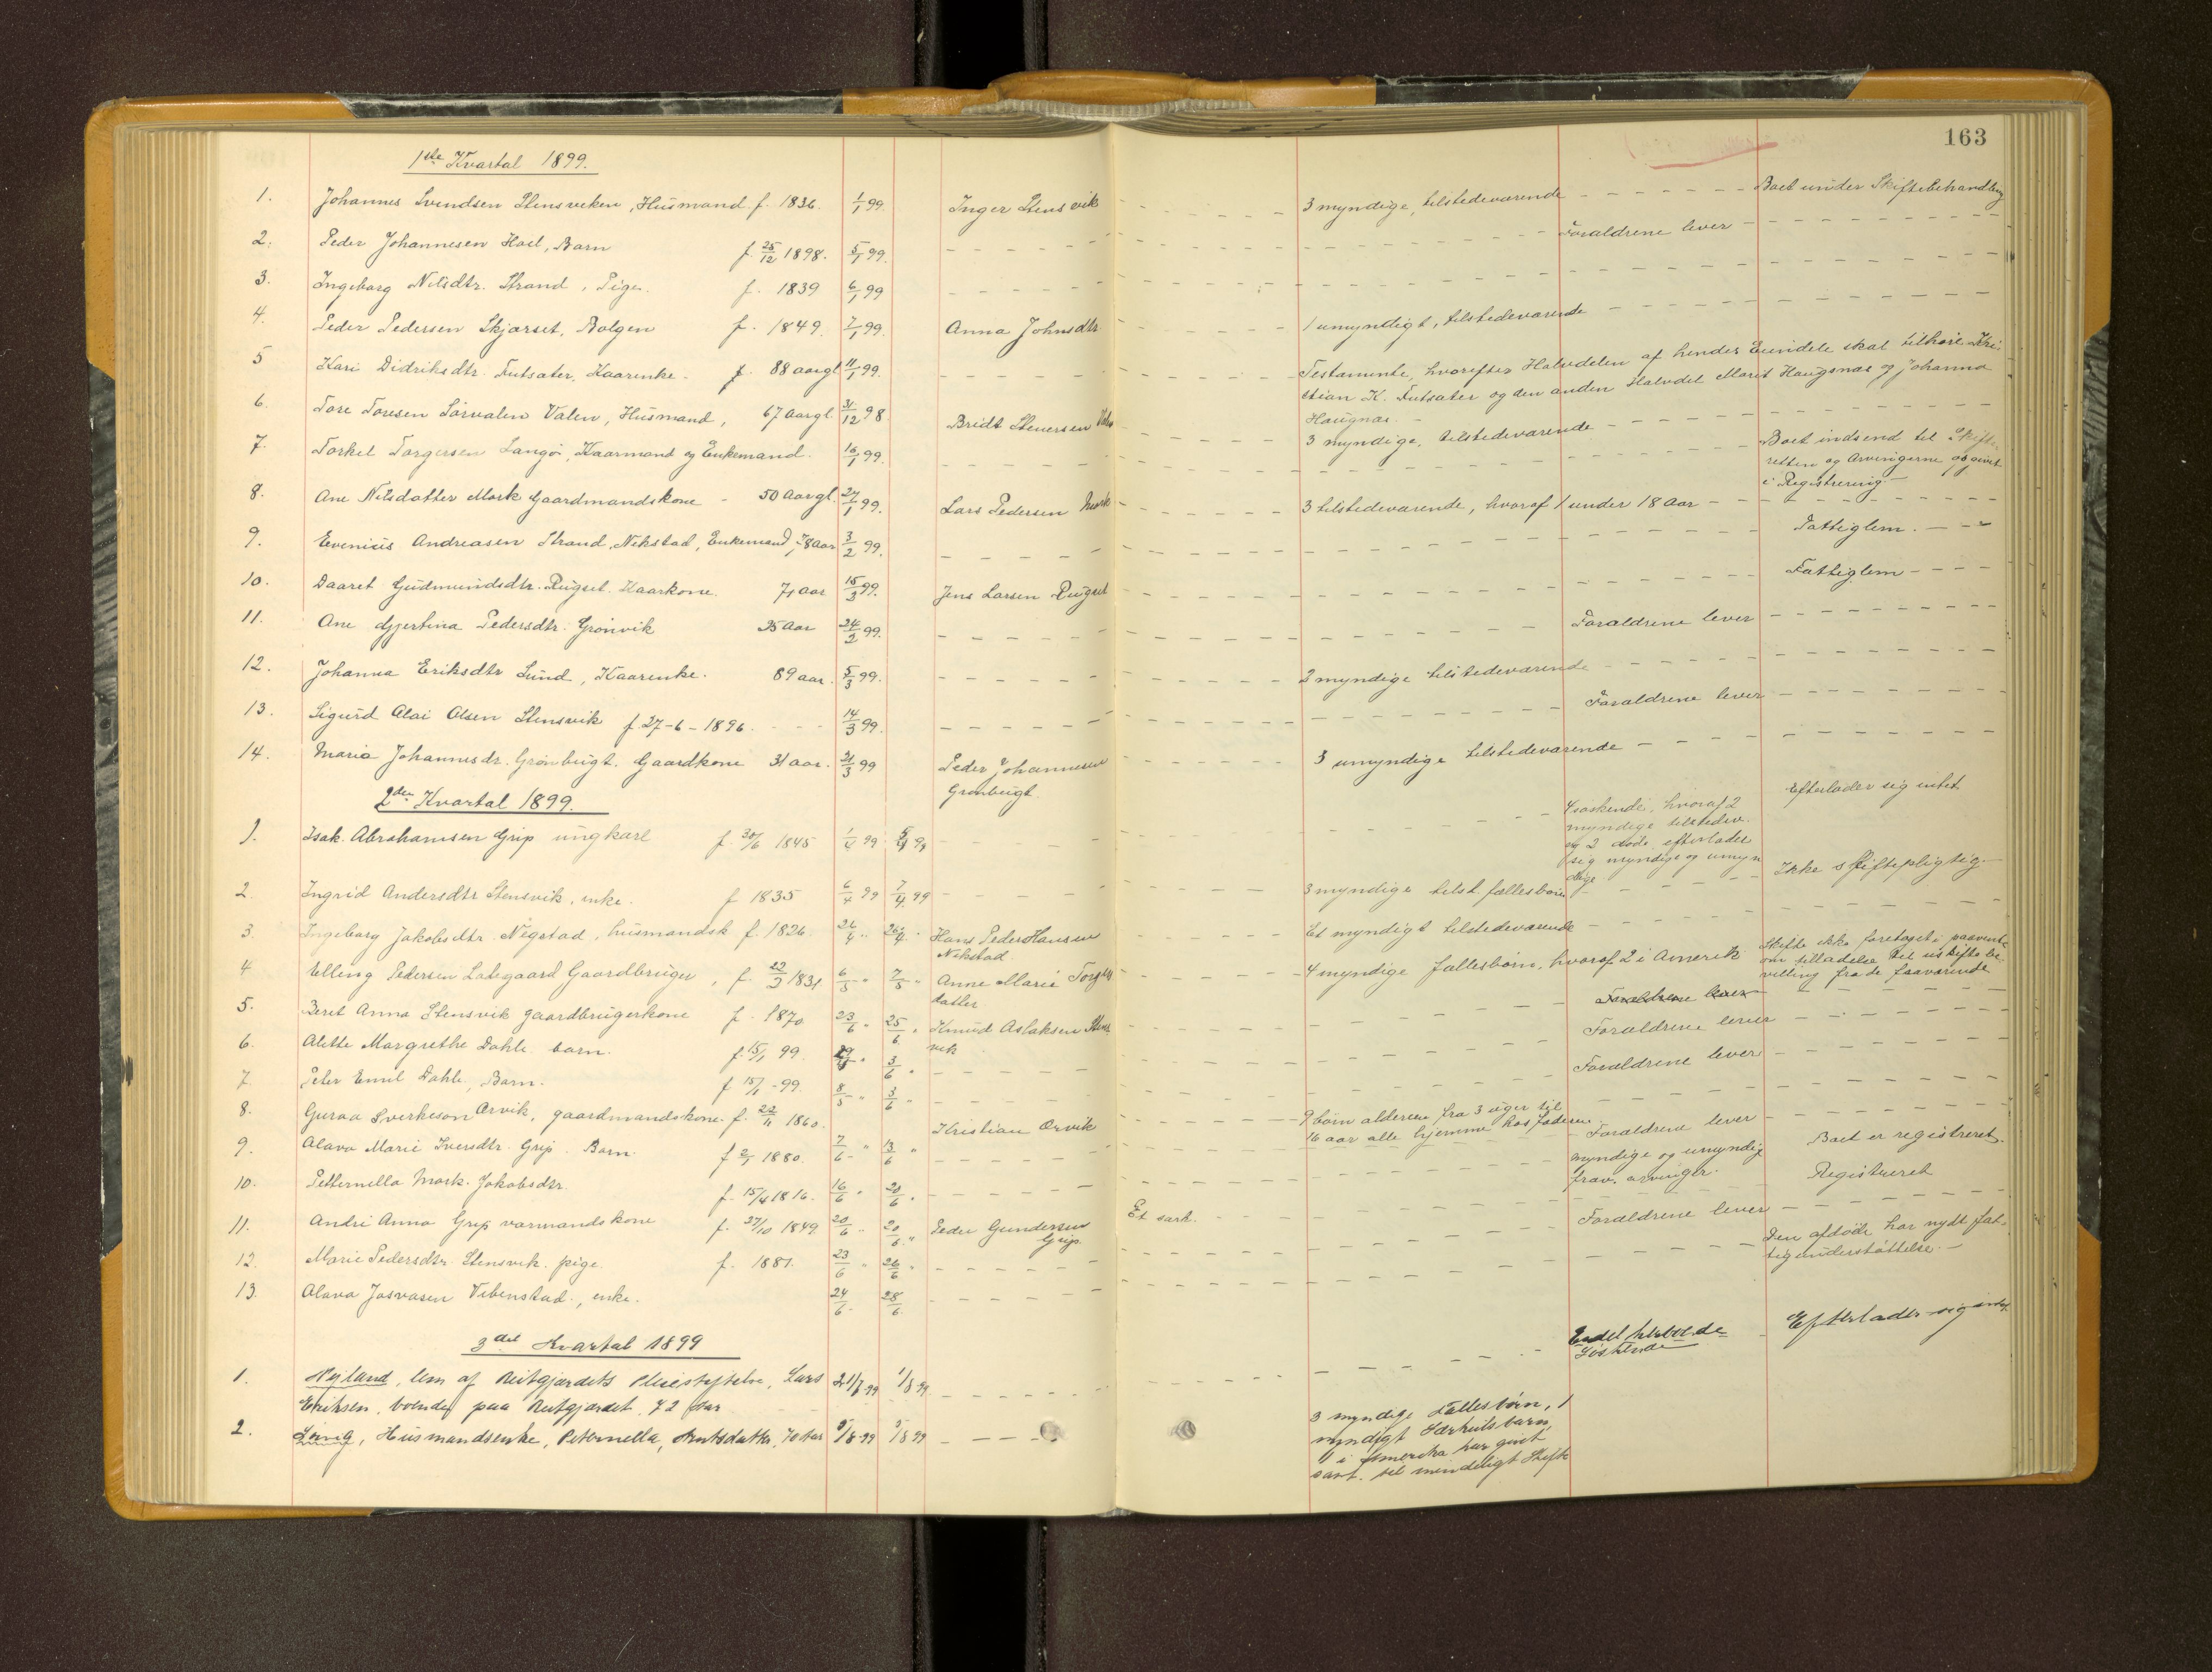 163
1ste Kvartal 1899.
1. Johannes Svendsen Stensveken, Husmand f. 1836. 1/1 99. Inger Stensvik 3 myndige, tilstedeværende Boet under Skiftebehandling
2. Peder Johannesen Hoel, Barn f. 25/12 1898. 5/1 99. Forældrene lever
3. Ingeborg Nilsdtr. Strand, Pige. f. 1839 6/1 99
4. Peder Pedersen Skjørset, Bolgen f. 1849. 7/1 99. Anna Johnsdtr 1 umyndigt, tilstedeværende
5 Kari Didriksdtr. Futsæter, Kaarenke. f. 88 aar gl 11/1 99. Testamente, hvorefter Halvdelen af hendes Eiendele skal tilhøre Kri-
stian K. Futsæter og den anden Halvdel Marit Haugsnæs og Johanna
Haugnæs.
6. Tore Toresen Sørvalen Valen, Husmand, 67 aar gl. 31/12 98 Bridt Stenersen 3 myndige, tilstedeværende
7. Torkel Torgersen Langøi, Kaarmand og Enkemand. 16/1 99. Boet indsend til Skifte-
retten og Arvingerne opgivet
i Registrering
8. Ane Nilsdatter Mork Gaardmandskone - 50 Aar gl. 27/1 99. Lars Pedersen Mork 3 tilstedeværende, hvoraf 1 under 18 Aar
9. Evenius Andreasen Strand, Nekstad, Enkemand, 78 Aar 3/2 99. Fattiglem.
10. Daaret Gudmundsdtr. Rugset. Kaarkone. 71 aar 15/3 99. Jens Larsen Rugset Fattiglem
11. Ane Gjertina Pedersdtr. Grønvik 35 Aar 24/2 99. Forældrene lever
12. Johanna Eriksdtr Lund, Kaarenke. 89 aar. 5/3 99. 2 myndige tilstedeværende
13. Sigurd Olai Olsen Stensvik f. 27-6-1896. 14/3 99. Forældrene lever
14. Maria Johannesdr. Grønbugt. Gaardkone 31 aar. 21/3 99 Peder Johannesen
Grønbugt. 3 umyndige tilstedeværende
2den Kvartal 1899.
1. Isak Abrahamsen Grip ungkarl f. 30/6 1845 1/4 99 5/4 99 4 søskende, hvoraf 2
myndige tilstedev.
og 2 døde efterlader
sig myndige og umyn
dige Efterlader sig intet
2. Ingrid Andersdtr Stensvik, enke. f 1835 6/4 99 7/4 99 3 myndige tilst. fællesbørn Ikke skiftepligtig
3. Ingeborg Jakobsdtr. Negstad, husmandsk f. 1826 26/4 " 26/4 " Hans Peder Hansen
Nekstad Et myndigt tilstedeværende
4 Elling Pedersen Laksgaard Gaardbruger, f. 22/3 1831 6/5 " 7/5 " Anne Marie Torger
datter 4 myndige fællesbørn, hvoraf 2 i Amerik Skifte ikke foretaget i paavente
om tilladelse til uskiftebe
villing fra de fraværende
Forældrene lever
5. Beret Anna Stensvik gaardbrugerkone f. 1870 23/6 " 25/6 " Knud Aslaksen Stens
vik Forældrene lever
6. Alette Margrethe Dahle barn. f. 15/1 99. 3/6 " Forældrene lever
7. Peter Emil Dahle, Barn. f 15/1 -99 8/5 " 3/6 "
8. Guroa Sverkeson Ørvik, gaardmandskone. f. 22/11 1860. Kristian Ørvik 9 børn alderen fra 3 uger til
16 aar alle hjemme hos faderen.
9. Olava Marie Iversdtr. Grip. Barn. f 2/1 1880. 7/6 " 13/6 " Forældrene lever Boet er registreret.
10. Petternella Mork. Jakobsdtr. f. 15/4 1816. 16/6 " 20/6 " myndige og umyndig
frav. arvinger. Registreret
11. Andri Anna Grip varmandskone f. 27/10 1849 20/6 " 20/6 " Peder Gundersen
Grip. Et særk.
12. Marie Pedersdtr. Stensvik. pige f. 1881. 23/6 " 26/6 " Forældrene lever
13. Olava Jasvasen Vebenstad., enke. 24/6 28/6 Den afdøde har nydt fat-
tigunderstøttelse.
3die Kvartal 1899
1. Hejland, lem af Reitgjærdets Pleiestiftelse, Lars
Eriksen, boende paa Reitgjærdet, 72 Aar 21/7 99 1/8 99 Endel helbaarne
Søskende Efterlader sig intet
2. Lung, Husmandsenke, Peternella, Arntsdatter, 70 Aar 9/8 99 9/8 99 3 myndige Fællesbørn, 1
myndigt Særkuldsbarn,
1 i Amerika har givet
samt. til mindeligt Skifte